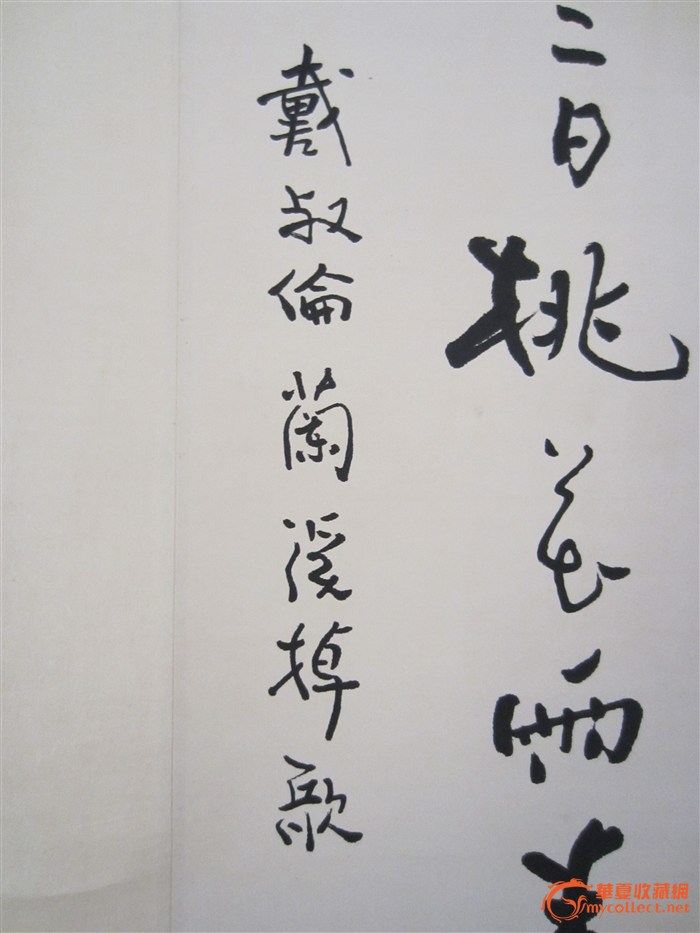 二日桃花雨
戴叔倫蘭溪棹歌
華夏收藏網
mycollect.net